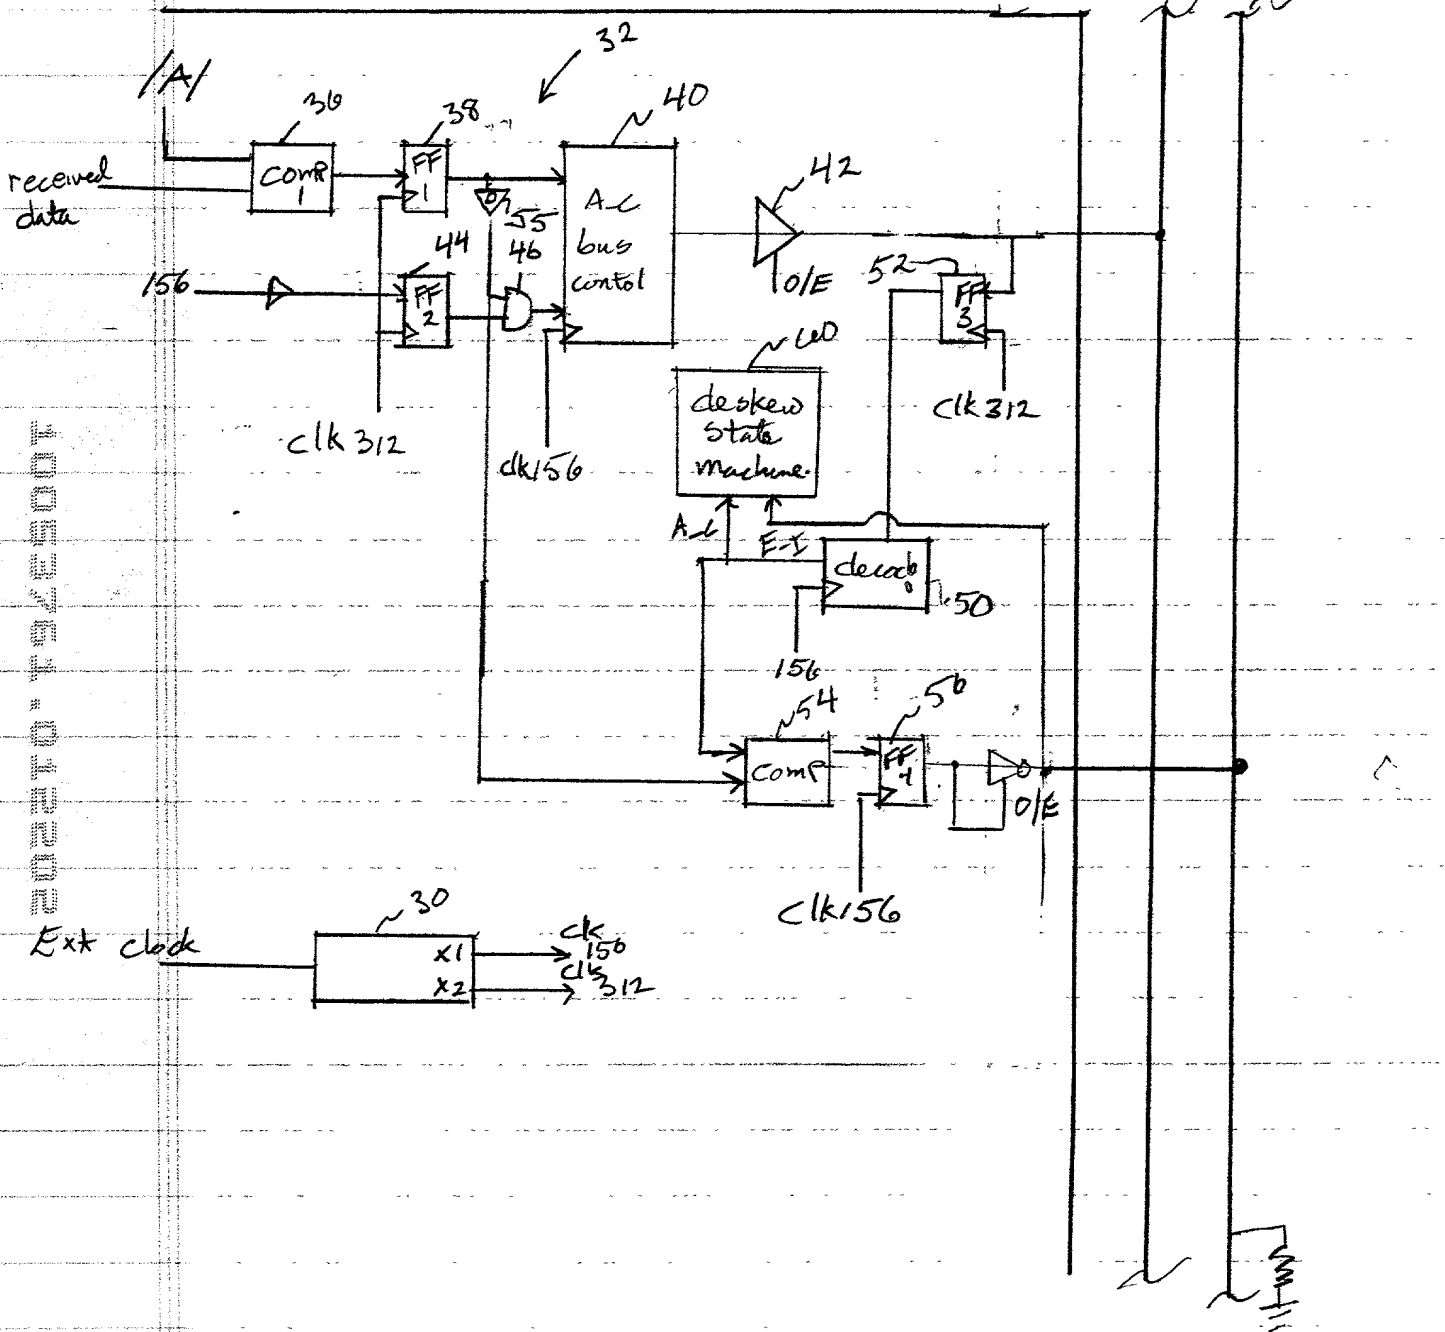 32
/A/
36
38
40
received
data
comp
1
FF
1
A-C
bus
contol
42
55
44
46
O/E
52
156
FF
2
FF
3
60
clk 312
clk156
deskew
state
machine.
clk312
A-C
E-I
decode
50
156
54
56
comp
FF
4
O/E
Clk156
10053761.012202
30
Ext clock
x1
x2
clk
156
clk
312